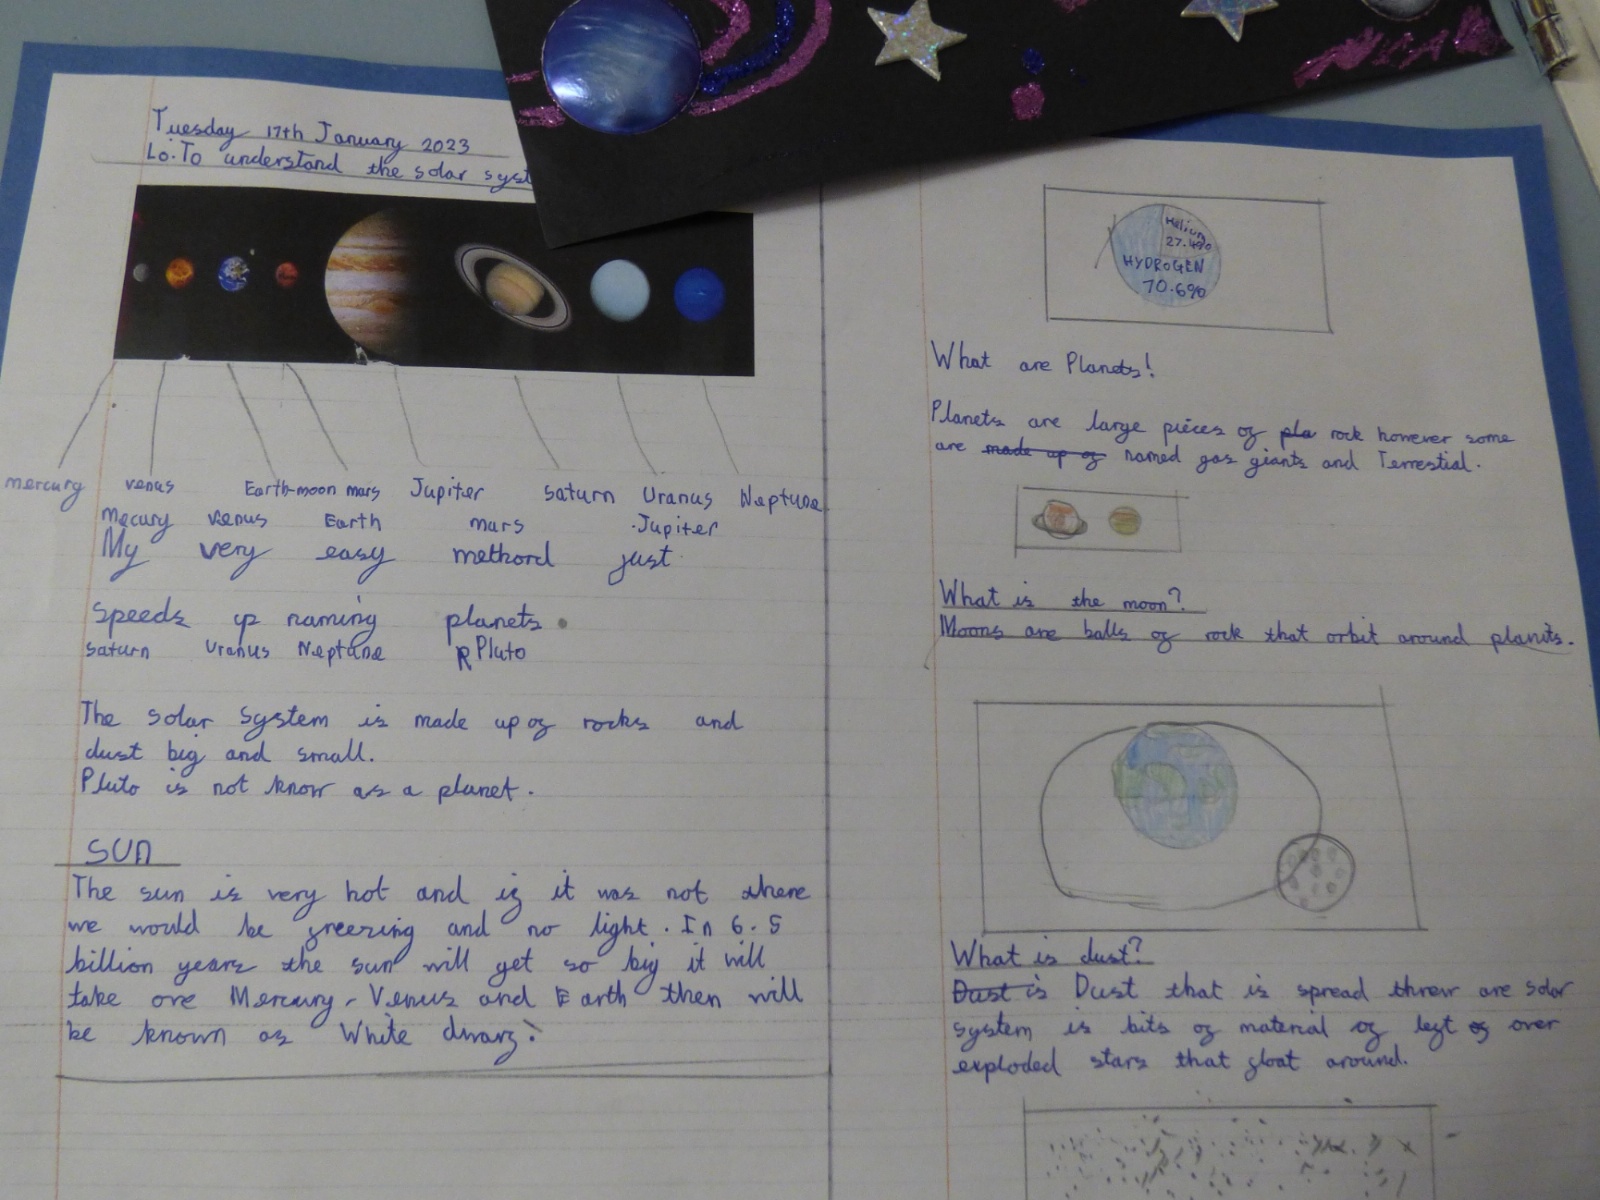 Tuesday 17th January 2023
Lo. To understand the solar syst
mercury venus Earth-moon mars Jupiter saturn Uranus Neptune
Mecury venus Earth mars Jupiter
My very easy methord just
Speeds up naming planets
saturn Uranus Neptune Pluto
The solar system is made up of rocks and
dust big and small.
Pluto is not know as a planet.
SUN
The sun is very hot and if it was not there
we would be freezing and no light. In 6.5
billion years the sun will get so big it will
take ove Mercury, Venus and Earth then will
be known as White dwarf.
Helium
27.4%
HYDROGEN
70.6%
What are Planets!
Planets are large pieces of pla rock however some
are made up of named gas giants and Terrestial.
What is the moon?
Moons are balls of rock that orbit around planits.
What is dust?
Dust is Dust that is spread threw are solar
system is bits of material of left of over
exploded stars that float around.